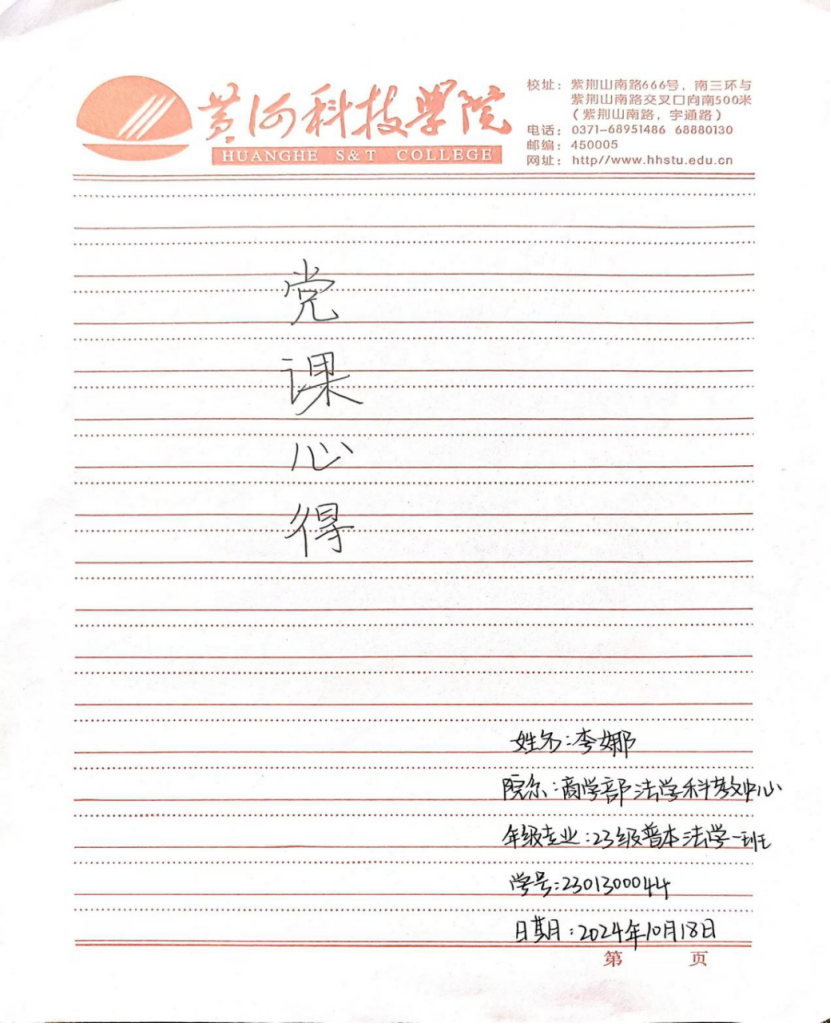 黄河科技学院
HUANGHE S&T COLLEGE
校址：紫荆山南路666号，南三环与
紫荆山南路交叉口向南500米
（紫荆山南路，宇通路）
电话：0371-68951486 68880130
邮编：450005
网址：http//www.hhstu.edu.cn
党
课
心
得
姓名：李娜
院系：商学部法学科教中心
年级专业：23级普本法学一班
学号：2301300044
日期：2024年10月18日
第 页